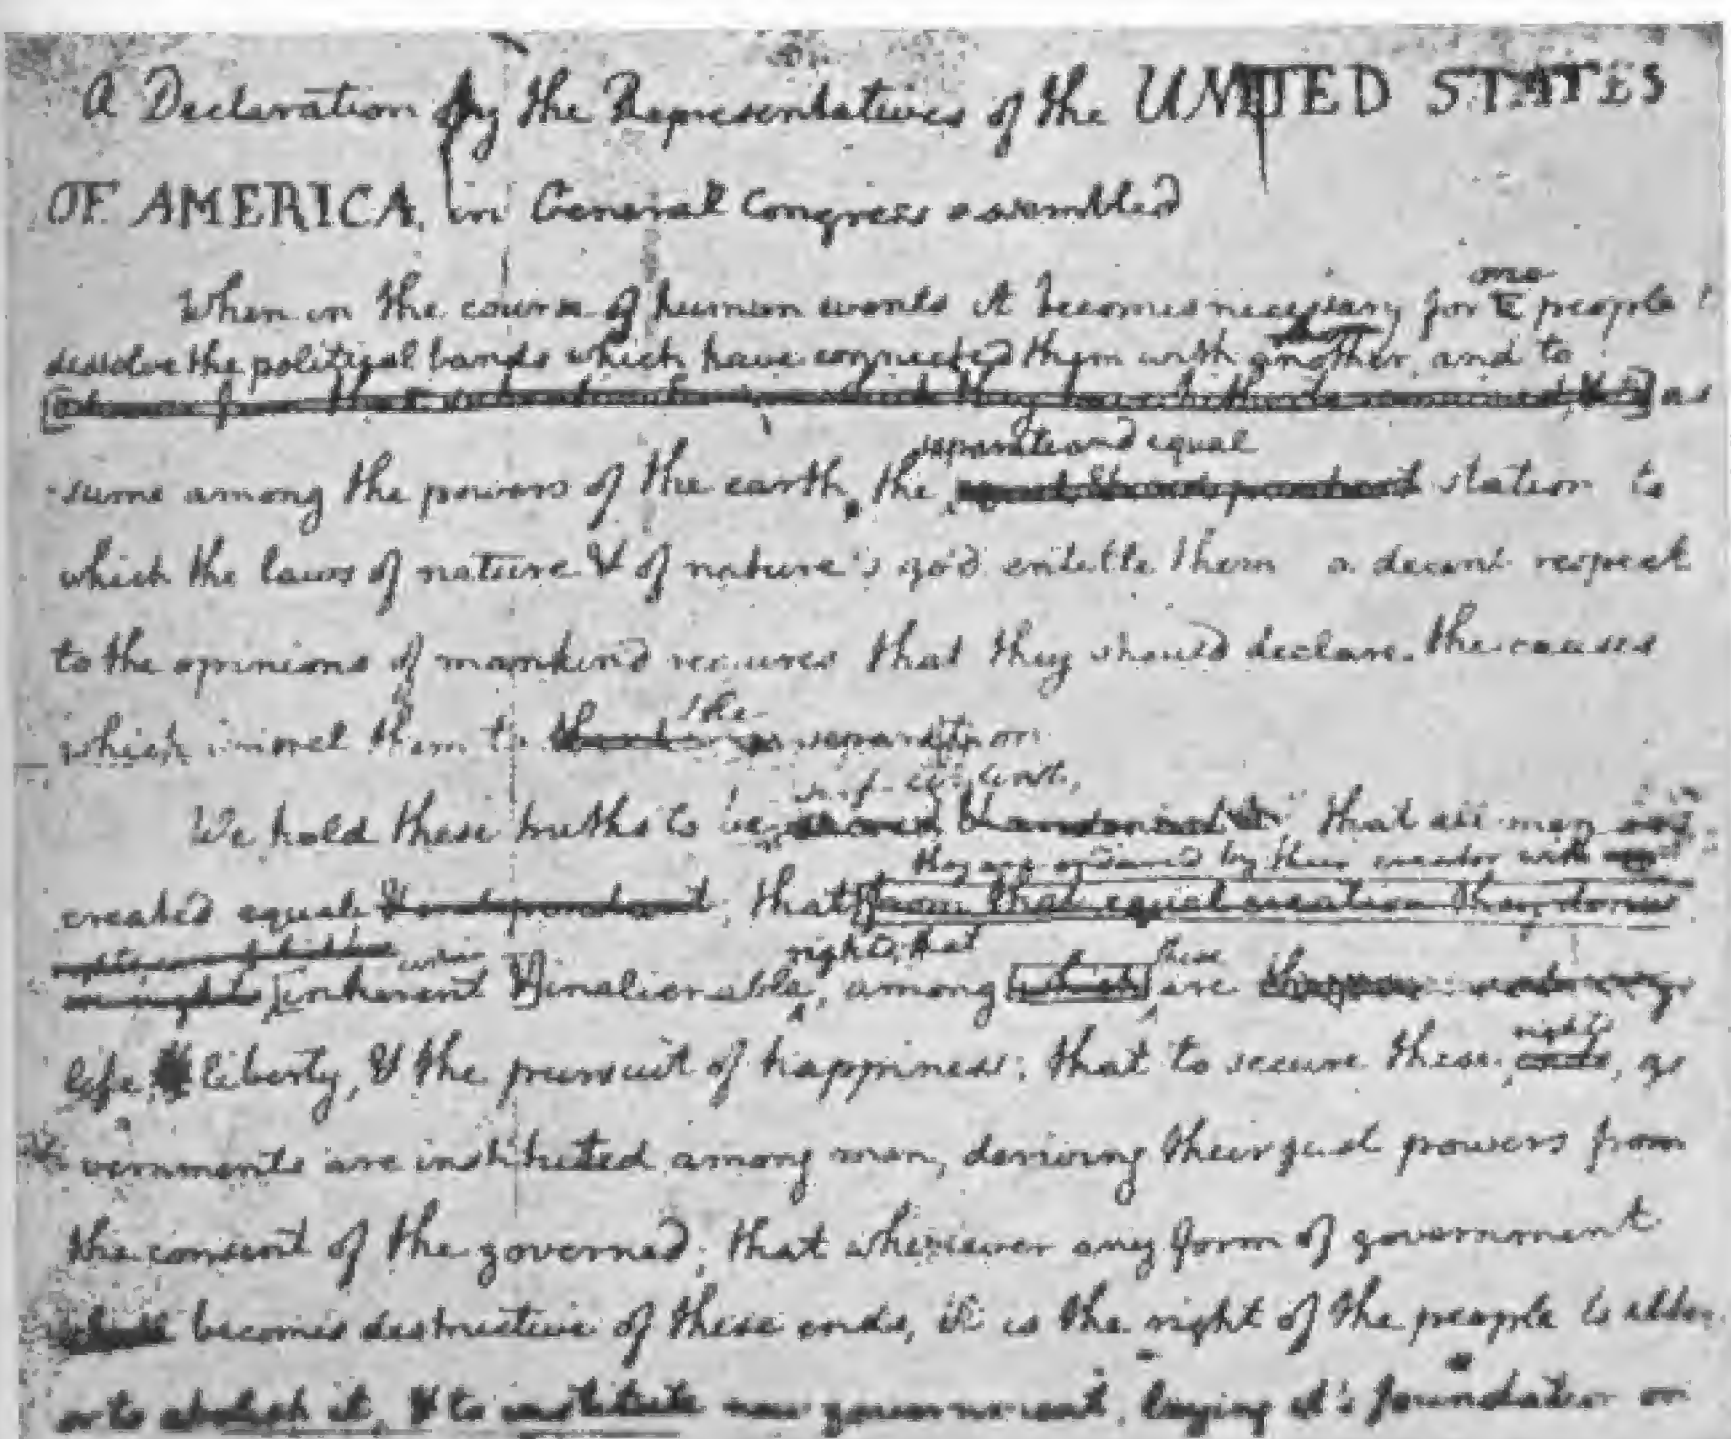 A Declaration by the Representatives of the UNITED STATES
OF AMERICA, in General Congress assembled
one
When in the course of human events it becomes necessary for a people
dissolve the political bands which have connected them with another, and to
as
separate and equal
sume among the powers of the earth, the station to
which the laws of nature & of nature's god entitle them a decent respect
to the opinions of mankind requires that they should declare the causes
the
which impel them to separation
self-evident,
We hold these truths to be that all men
they are endowed by their creator with
created equal & independant, that from that equal creation they derive
rights; that
these
in rights inherent & inalienable, among which are
rights
life, liberty, & the pursuit of happiness; that to secure these ends, go
vernments are instituted among men, deriving their just powers from
the consent of the governed; that whenever any form of government
shall becomes destructive of these ends, it is the right of the people to alter
or to abolish it, & to institute new government, laying it's foundation on